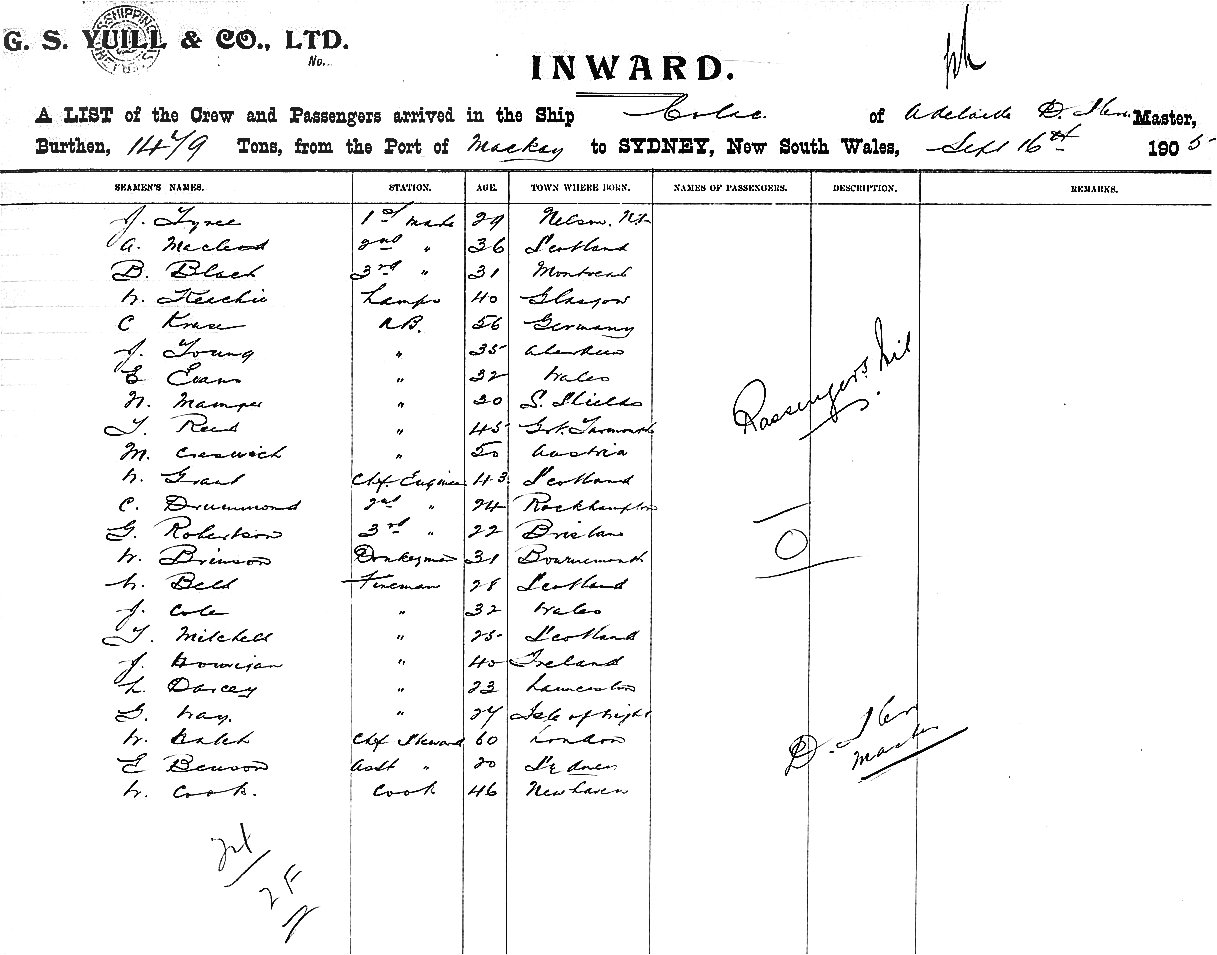 SHIPPING
G. S. YUILL & CO., LTD.
No.
INWARD.
A LIST of the Crew and Passengers arrived in the Ship Colac of Adelaide D. Master,
Burthen, 1479 Tons, from the Port of Mackay to SYDNEY, New South Wales, Sept 16th 1905
SEAMEN'S NAMES. STATION. AGE. TOWN WHERE BORN. NAMES OF PASSENGERS. DESCRIPTION. REMARKS.
J. Tyree 1st mate 29 Nelson. NZ
A. Macleod 2nd " 36 Scotland
B. Black 3rd " 31 Montreal
W. Keachie Lamps 40 Glasgow
C Kruse A.B. 56 Germany
J. Young " 35 Aberdeen
E Evans " 32 Wales
N. " 20 S. Shields
T. Reed " 45 Gt. Yarmouth
M. " 50 Austria
W. Grant Chf. Engineer 43 Scotland
C. Drummond 2nd " 24 Rockhampton
G. Robertson 3rd " 22 Brisbane
W. Brinson Donkeyman 31 Bournemouth
W. Bell Fireman 28 Scotland
J. Cole " 32 Wales
T. Mitchell " 25 Scotland
J. " 40 Ireland
L. Darcey " 23 Launceston
G. Way. " 27 Isle of Wight
W. Chf Steward 60 London
E Benson Asst " 20 Sydney
W. Cook. Cook 46 Newhaven
Passengers Nil
0
D.
Master